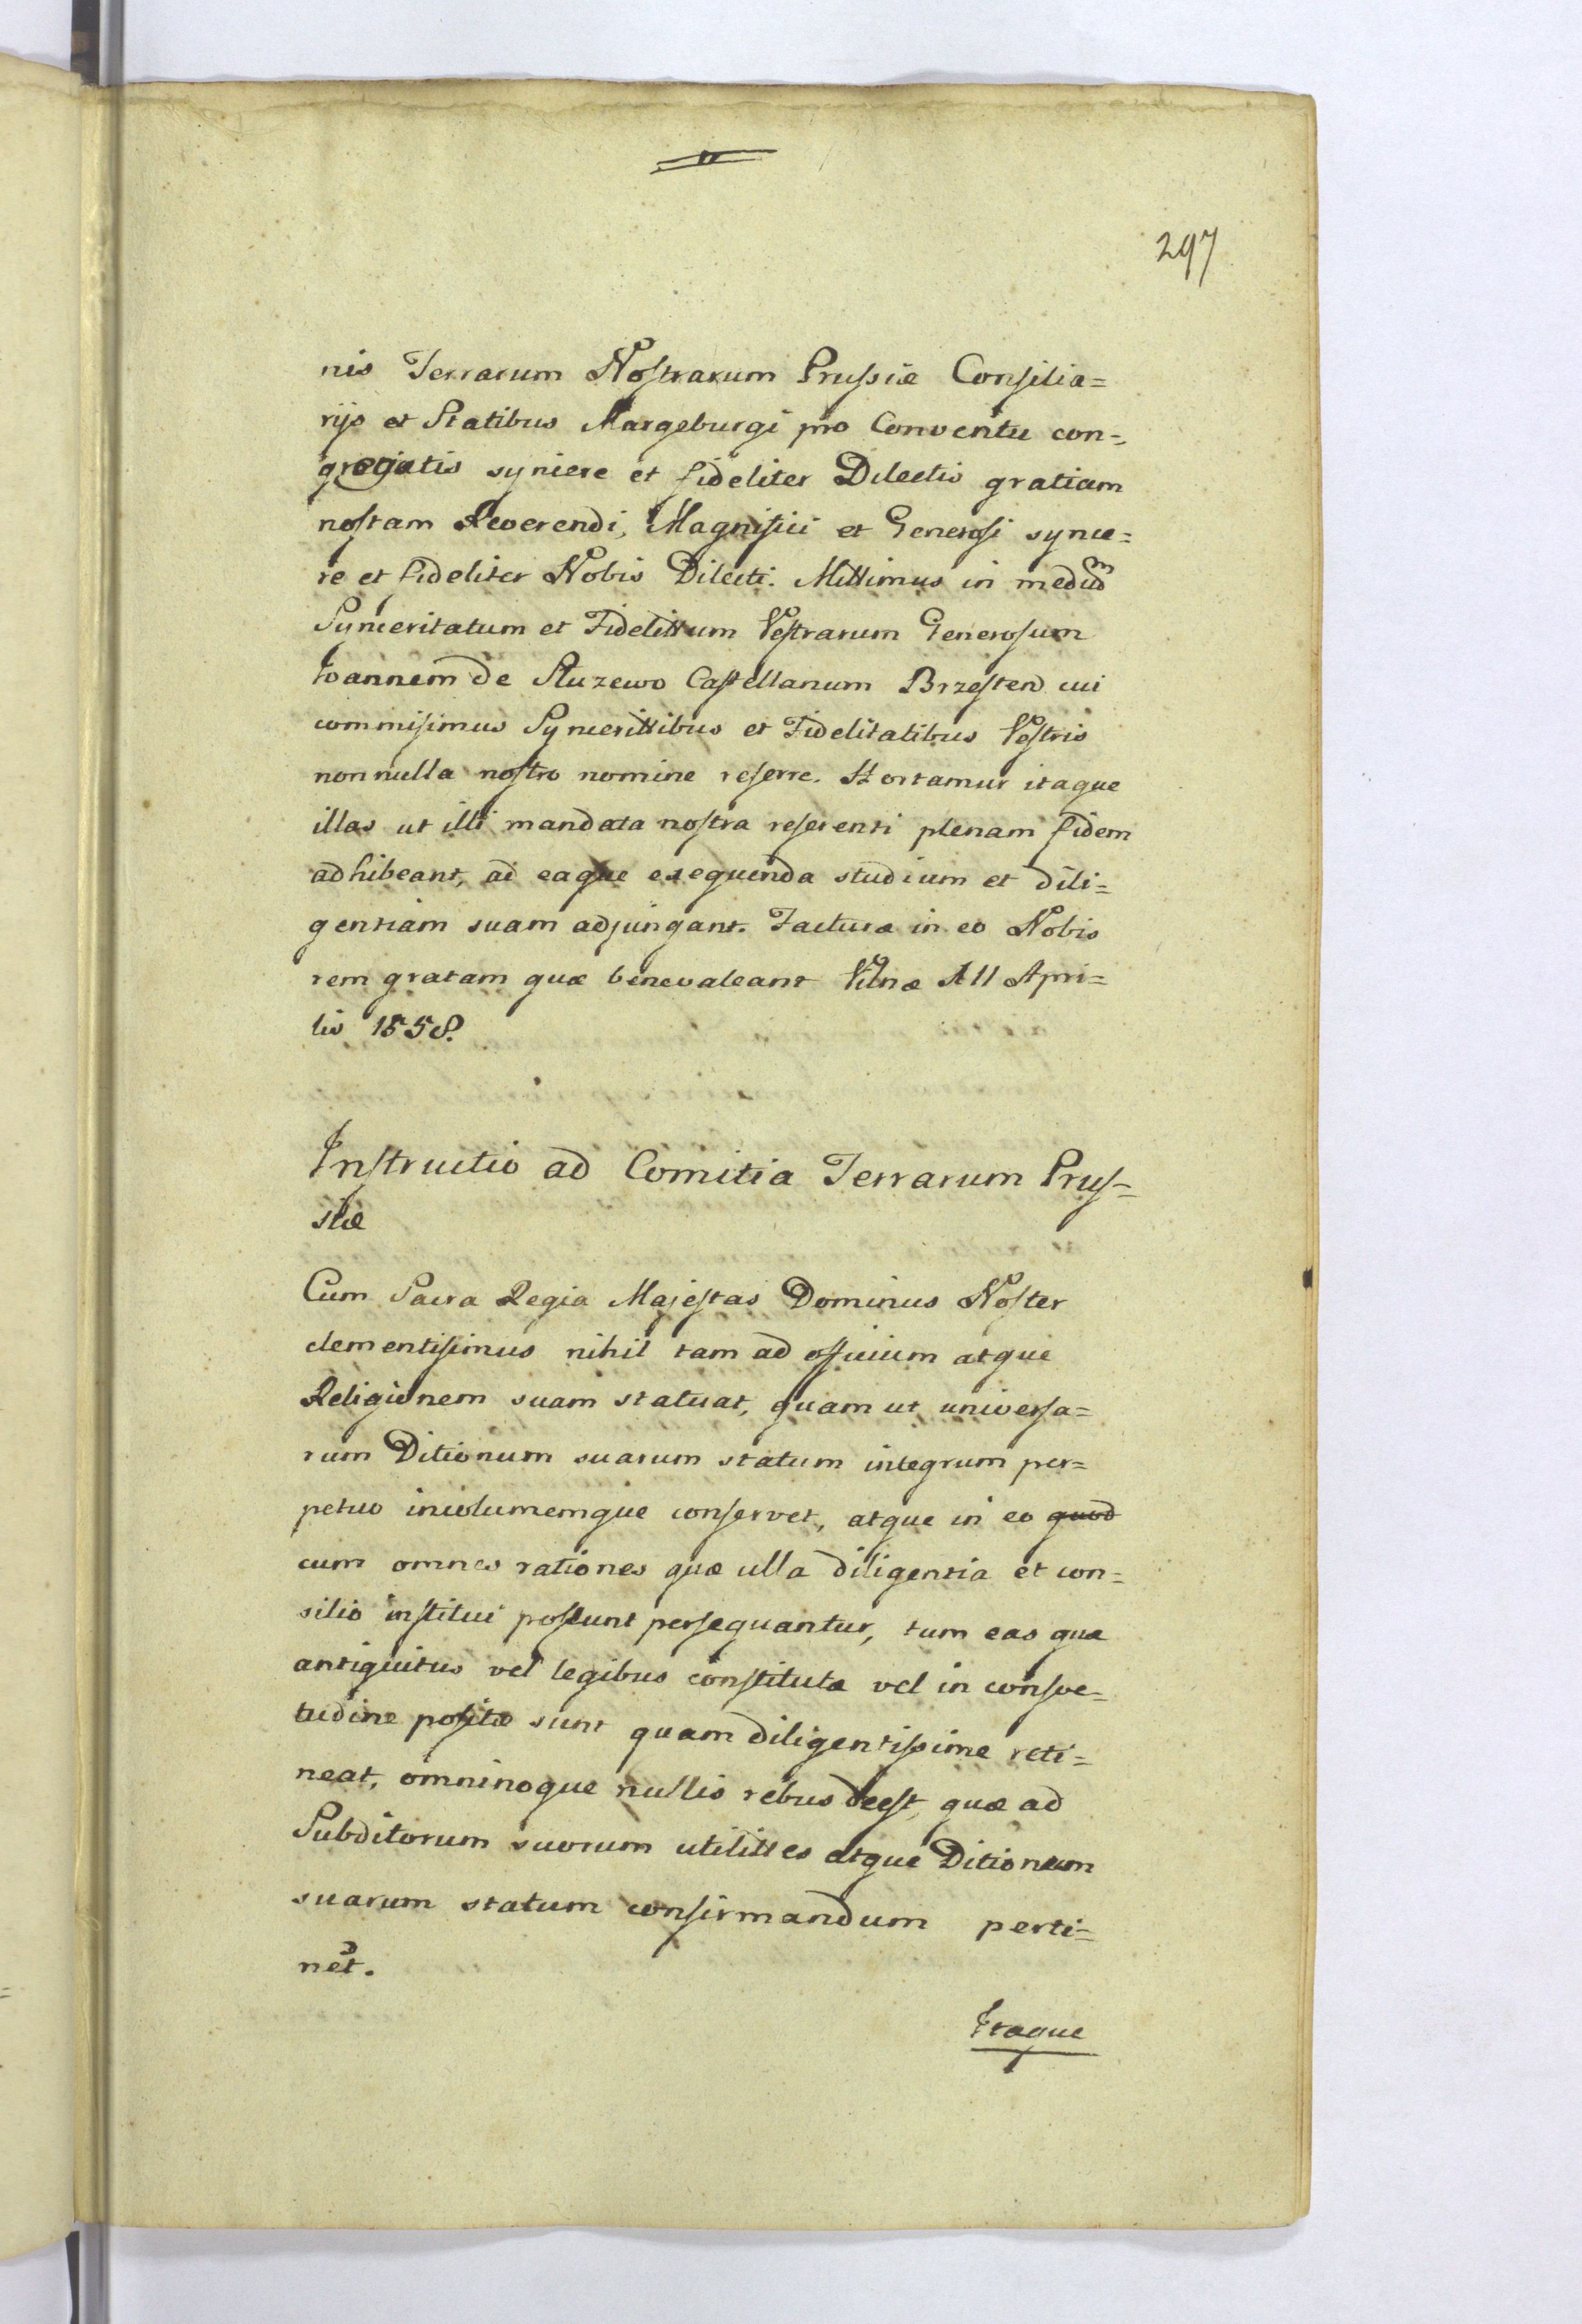 297
nis Terrarum Nostrarum Prussiæ Consilia=
rijs et Statibus Margeburgi pro Conventu con=
gregatis syncere et fideliter Dilectis gratiam
nostam Reverendi, Magnifici et Generosi synce=
re et fideliter Nobis Dilecti. Mittimus in medium
Synceritatum et Fidelittum Vestrarum Generosum
Ioannem de Sluzewo Castellanum Brzesten cui
commisimus Syncerittibus et Fidelitatibus Vestris
nonnulla nostro nomine referre. Hortamur itaque
illas ut illi mandata nostra referenti plenam fidem
adhibeant, ad eaque exequenda studium et dili=
gentiam suam adjungant. Facturæ in eo Nobis
rem gratam quæ benevaleant Vilnæ XII Apri=
lis 1558.
Instructio ad Comitia Terrarum Prus=
siæ
Cum Sacra Regia Majestas Dominus Noster
clementisimus nihil tam ad officium atque
Religionem suam statuat, quam ut universa=
rum Ditionum suarum statum integrum per=
petuo incolumemque conservet, atque in eo quod
cum omnes rationes quæ ulla diligentia et con=
silio institui possunt persequantur, tum eas quæ
antiquitus vel legibus constitutæ vel in consve=
tudine positæ sunt quam diligentissime reti=
neat, omninoque nullis rebus deest, quæ ad
Subditorum suorum utilittes atque Ditionum
suarum statum confirmandum perti=
net.
Itaque